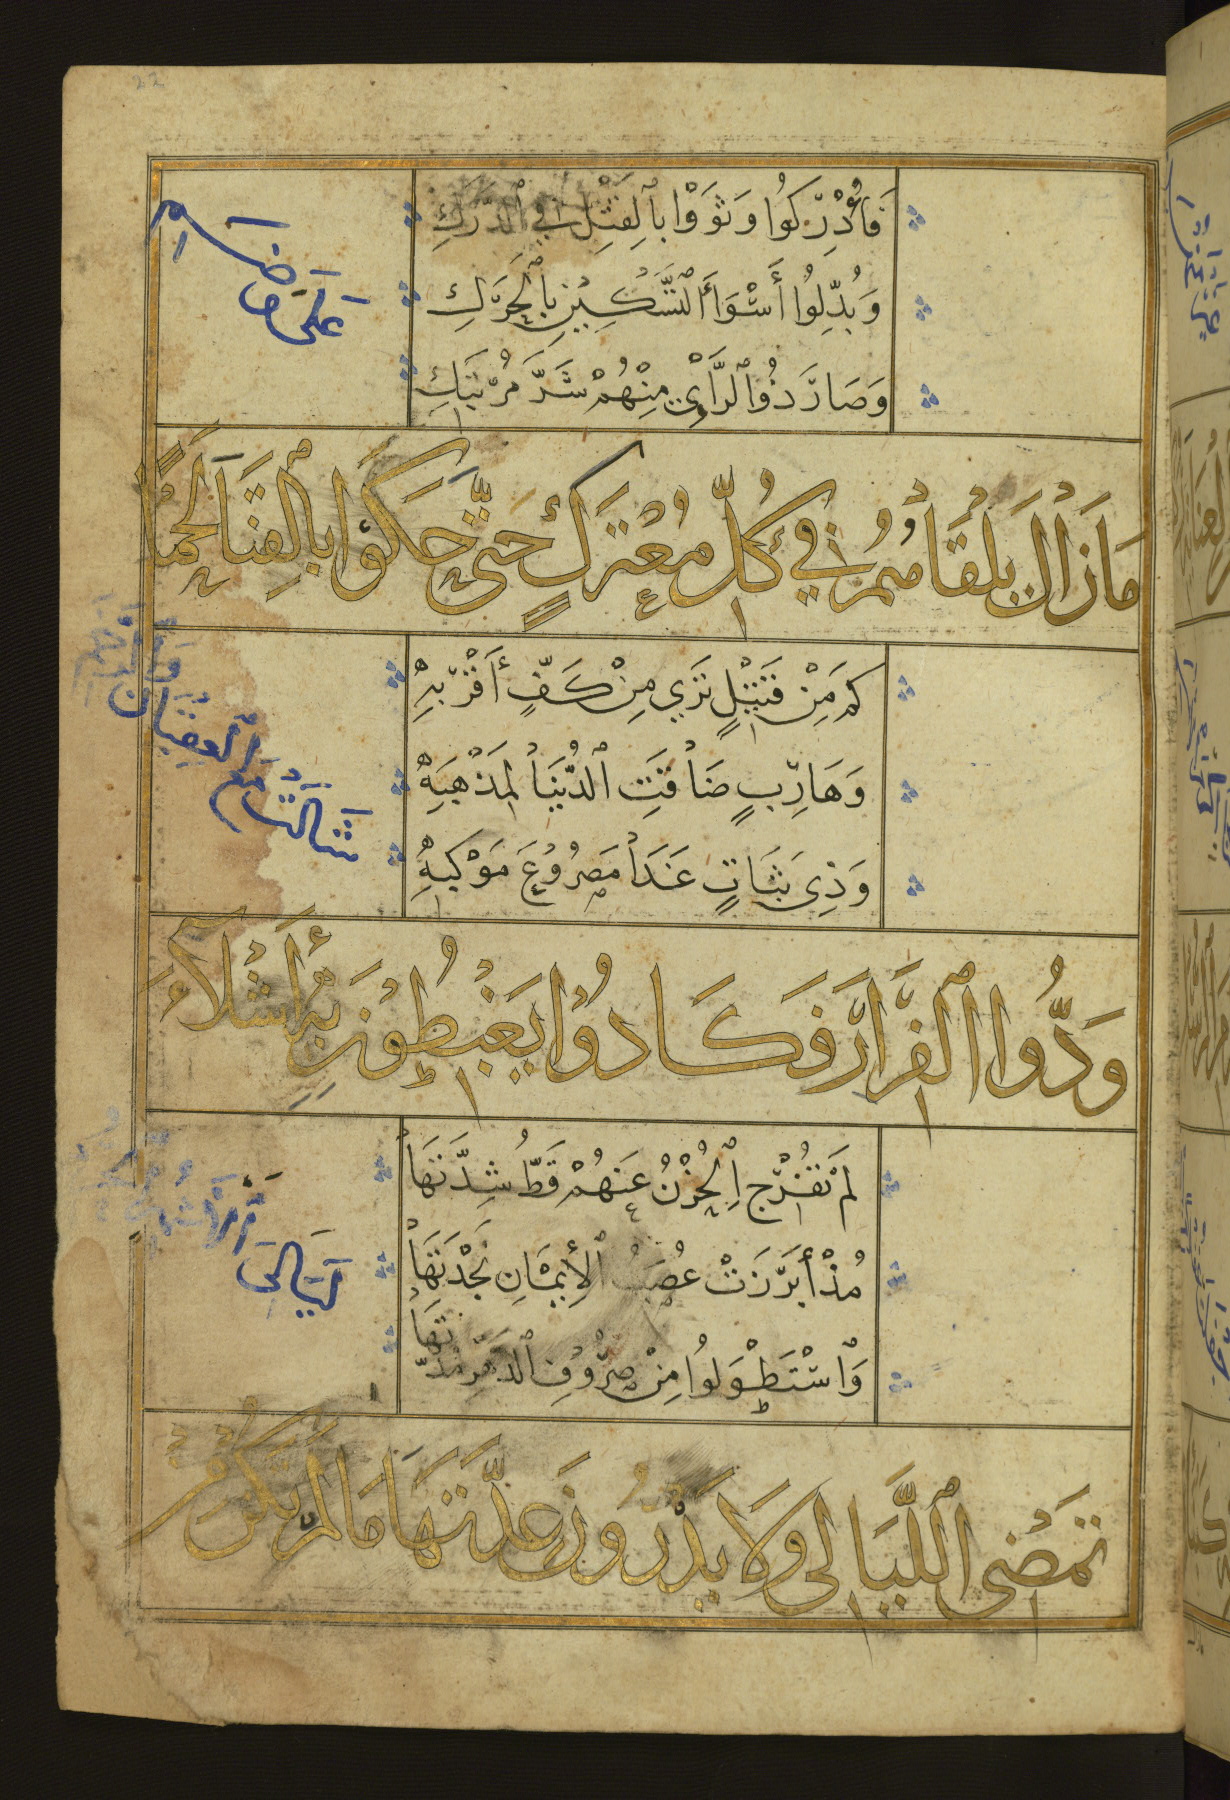 22
فَأُدْرِكُوا وَثَوَوْا بِالْقَتْلِ فِي الدَّرَكِ
وَبُدِّلُوا أَسْوَأَ التَّسْكِينِ بِالْحَرَكِ
وَصَارَ ذُو الرَّأْيِ مِنْهُمْ شَرَّ مُرْتَبَكِ
مَا زَالَ يَلْقَاهُمُ فِي كُلِّ مُعْتَرَكٍ حَتَّى حَكَوْا بِالْقَنَا لَحْمًا
عَلَى وَضَمِ
كَمْ مِنْ قَتِيْلٍ تَرَى مِنْ كَفِّ أَقْرَبِهِ
وَهَارِبٍ ضَاقَتِ الدُّنْيَا لِمَذْهَبِهِ
وَذِي ثَبَاتٍ غَدَا مَصْرُوعَ مَوْكِبِهِ
وَدُّوا الْفِرَارَ فَكَادُوا يَغْبِطُونَ بِهِ أَشْلَاءَ
شَالَتْ مَعَ الْعِقْبَانِ وَالرَّخَمِ
لَمْ تُفَرِّجِ الْحُزْنَ عَنْهُمْ قَطُّ شِدَّتُهَا
مُذْ أَبْرَزَتْ عُصَبُ الْإِيْمَانِ نَجْدَتَهَا
وَاسْتَطْوَلُوا مِنْ صُرُوفِ الدَّهْرِ مُدَّتَهَا
تَمْضِي اللَّيَالِي وَلَا يَدْرُونَ عِدَّتَهَا مَا لَمْ تَكُنْ مِنْ
لَيَالِي الْأَشْهُرِ الْحُرُمِ